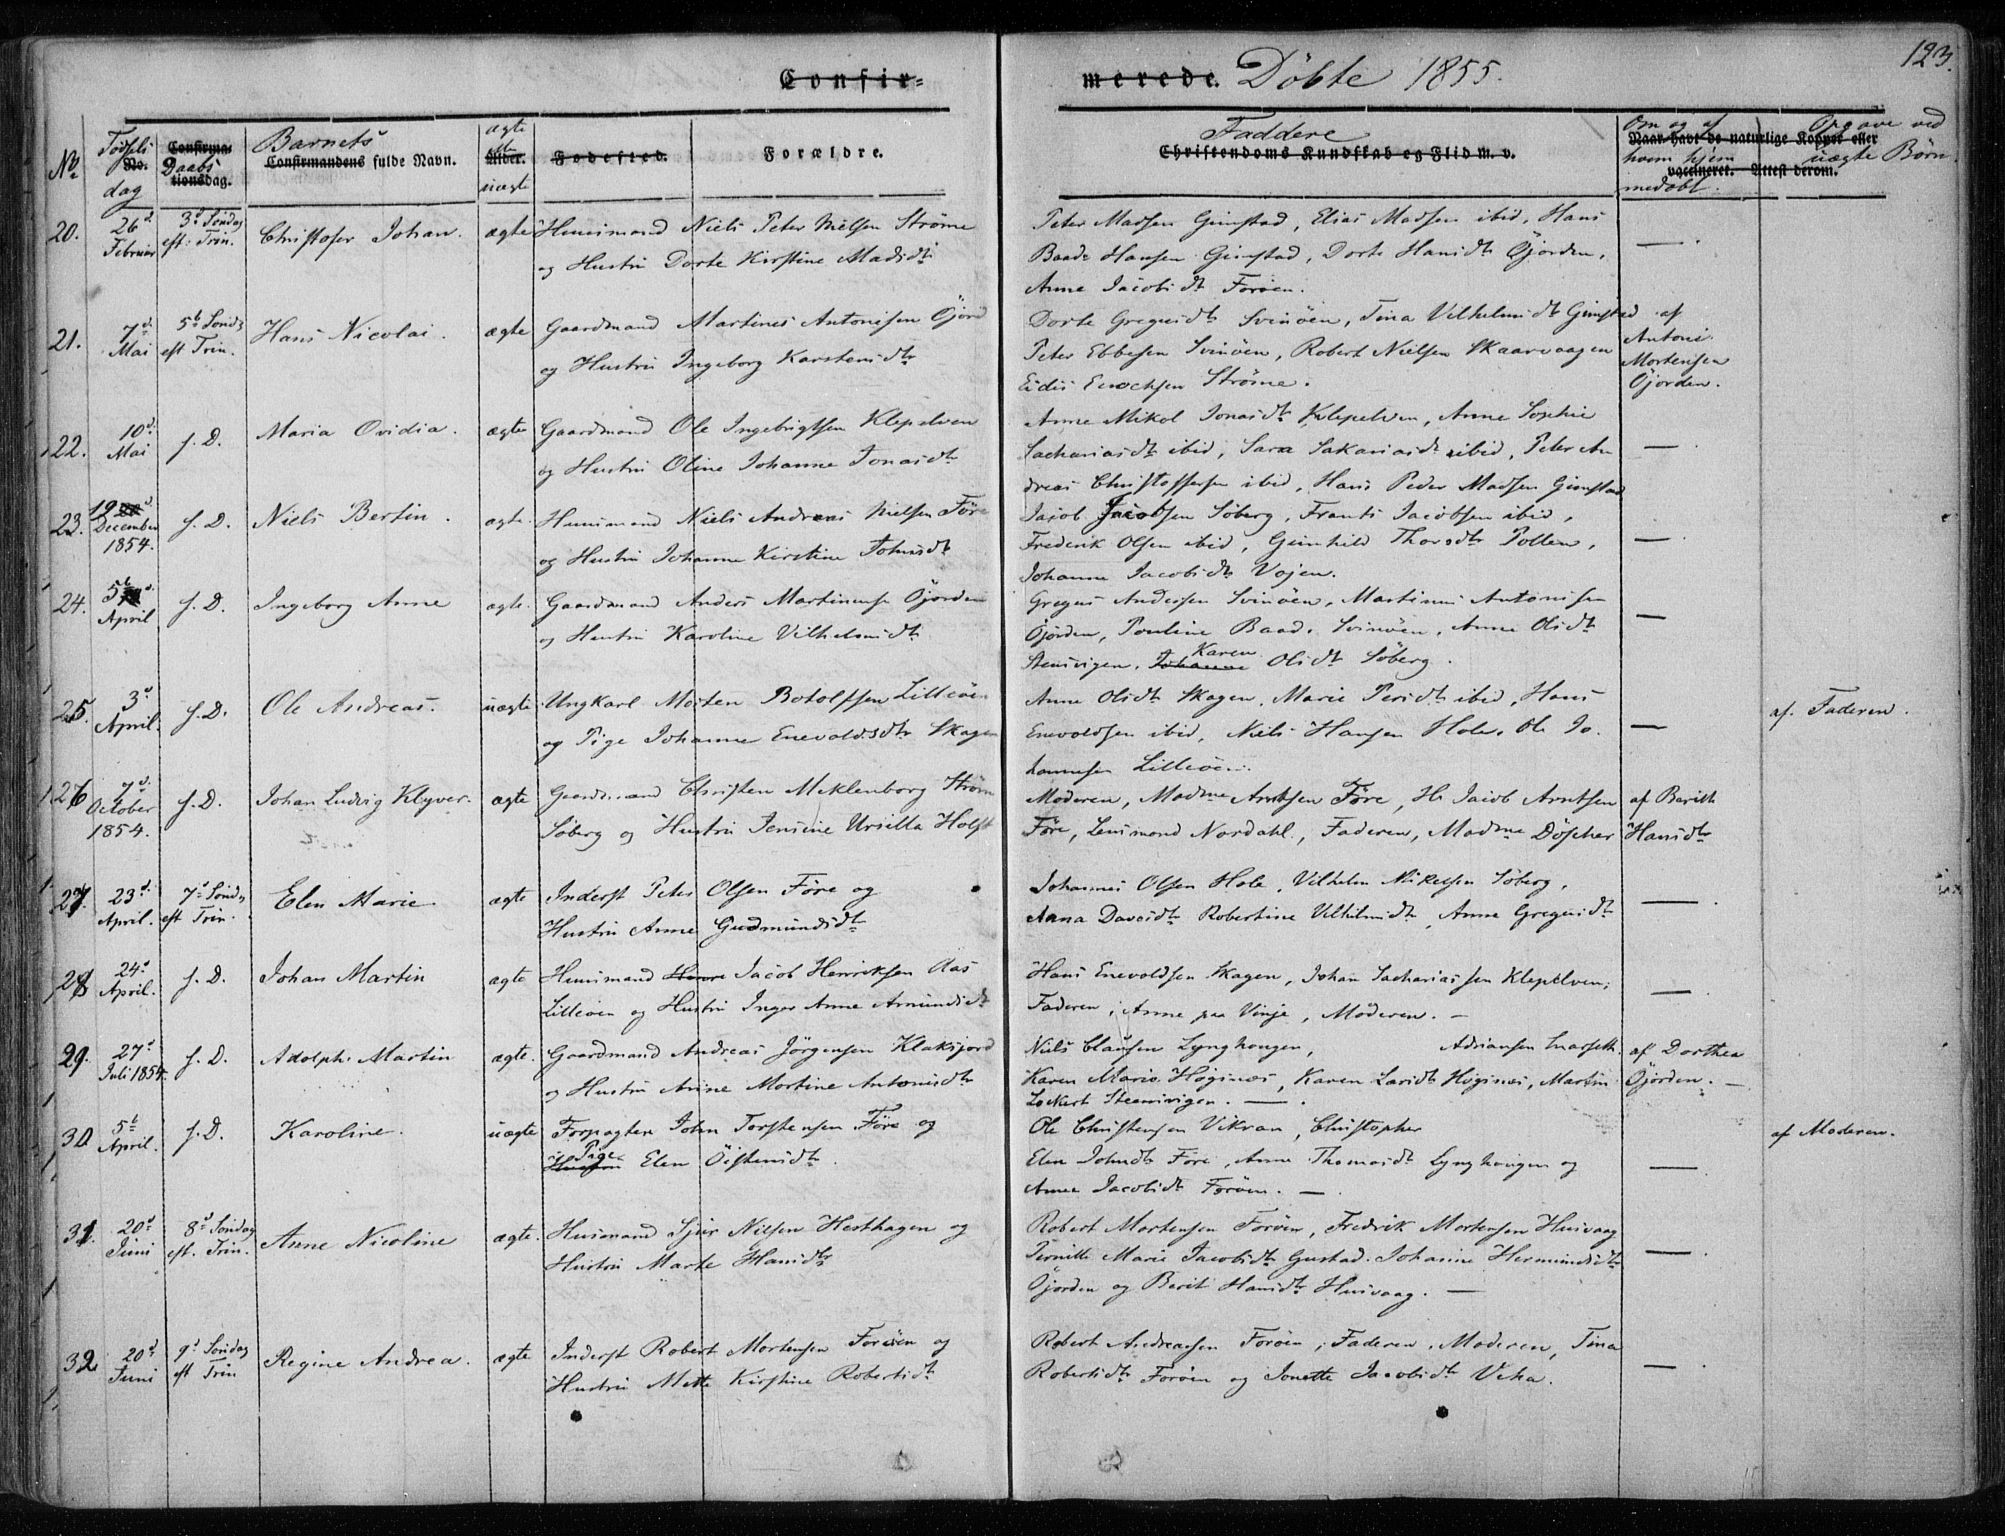 123.
Confirmerede. Döbte 1855.
No Fødsels dag No. Confirmationsdag. Daabs Barnets Confirmandens fulde Navn. ægte ell uægte Alder. Fødested. Forældre. Faddere Christendoms Kundskab og Flid m. v. Om og af hvem hjemmedøbt. Naar havt de naturlige Kopper eller vaccineret. Attest derom. Opgave ved uægte Børn
20. 26d Februar 3d Søndag eft: Trin. Christofer Johan. ægte Huusmand Niels Peter Nielsen Strøme
og Hustru Dorte Kirstine Madsdtr
Peter Madsen Gimstad, Elias Madsen ibid, Hans
Baade Hansen Gimstad, Dorte Hansdtr Öjorden,
Anne Jacobsdtr Forøen. —
21. 7d Mai 5te Sønd. eft Trin. Hans Nicolai. ægte Gaardmand Martines Antonisen Öjord
og Hustru Ingeborg Karstensdtr
Dorte Gregusdtr Svinøen, Tina Vilhelmsdtr Gimstad
Peter Ebbesen Svinöen, Robert Nielsen Skaarvaagen
Eidis Enochsen Strøme.
af Antoni Mortensen Öjorden.
22. 10d Mai f. D. Maria Ovidia. ægte Gaardmand Ole Ingebrigtsen Klepelven
og Hustru Oline Johanne Jonasdtr
Anne Mikol Jonasdtr Klepelven, Anne Sophie
Sachariasdtr ibid, Sara Sakariasdtr ibid, Peter An
dreas Christoffersen ibid, Hans Peder Madsen Gimstad —
23. 19d December 1854. f. D. Niels Bertin. ægte. Huusmand Niels Andreas Nielsen Före
og Hustru Johanne Kirstine Johnsdtr
Jacob Jacobsen Söberg, Frants Jacobsen ibid,
Frederik Olsen ibid, Gunhild Thorsdtr Pollen,
Johanna Jacobsdtr Vojen. —
24. 5te April f. D. Ingeborg Anne ægte. Gaardmand Anders Martinusen Öjorden
og Hustru Karoline Vilhelmsdtr
Gregus Andersen Svinöen, Martinus Antonisen
Öjorden, Pouline Baade Svinöen, Anne Olsdtr
Steensvigen, Johanne Karen Olsdtr Söberg. —
25. 3d April. f. D. Ole Andreas. uægte Ungkarl Morten Botolfsen Lilleöen
og Pige Johanne Enevoldsdtr Skagen
Anne Olsdtr Skagen, Marie Persdtr ibid, Hans
Enevoldsen ibid, Niels Hansen Hole, Ole Jo
hannesen Lilleöen. — af Faderen.
26 7d October 1854. f. D. Johan Ludvig Klyver. ægte Gaardmand Christen Meklenborg Ström
Söberg og Hustru Jensine Ursilla Holst
Moderen, Madme Arntsen Före, Hr Jacob Arntsen
Före, Lensmand Nordahl, Faderen, Madme Döscher
af Barith Hansdtr
27. 23d April. 7d Sønd. eft Trin. Elen Marie ægte Inderst Peter Olsen Före og
Hustru Anne Gudmundsdtr
Johannes Olsen Hole, Vilhelm Mikelsen Söberg,
Anna Davidsdtr Robertine Vilhelmsdtr, Anne Gregusdtr —
28 24d April. f. D. Johan Martin ægte Huusmand Jacob Henriksen Aas
Lilleöen og Hustru Inger Anne Amundsdtr
Hans Enevoldsen Skagen, Johan Sachariassen Klepelven,
Faderen, Anne paa Vinje, Moderen. — —
29. 27d Juli 1854. f. D. Adolph Martin ægte. Gaardmand Andreas Jörgensen Klaksjord
og Hustru Anne Martine Antonisdtr
Niels Clausen Lynghougen, Adriansen
Karen Marie Höginæs, Karen Larsdtr Höginæs, Martin
Lockert Steensvigen. —
af Dorthea Öjorden. —
30 5te April. f. D. Karoline. uægte Forpagter John Torstensen Före og
Hustru Pige Elen Öistensdtr.
Ole Christensen Vikvan, Christopher
Elen Johnsdtr Före, Anne Thomasdtr Lynghougen og
Anne Jacobsdtr Foröen. — — af Moderen.
31. 20d Juni 8d Søndag eft. Trin. Anne Nicoline ægte. Husmand Sjur Nilsen Hesthagen og
Hustru Marte Hansdtr
Robert Mortensen Foröen, Fredrik Mortensen Husvaag
Pernille Marie Jacobsdtr Gustad. Johanne Hermundsdtr
Öjorden og Berit Hansdtr Husvaag. — —
32 20d Juni 9d Søndag eft Trin Regine Andrea. ægte Inderst Robert Mortensen Foröen og
Hustru Mette Kirstine Robertsdtr
Robert Andreassen Foröen, Faderen, Moderen, Tina
Robertsdtr Foröen og Jonette Jacobsdtr Veha. —